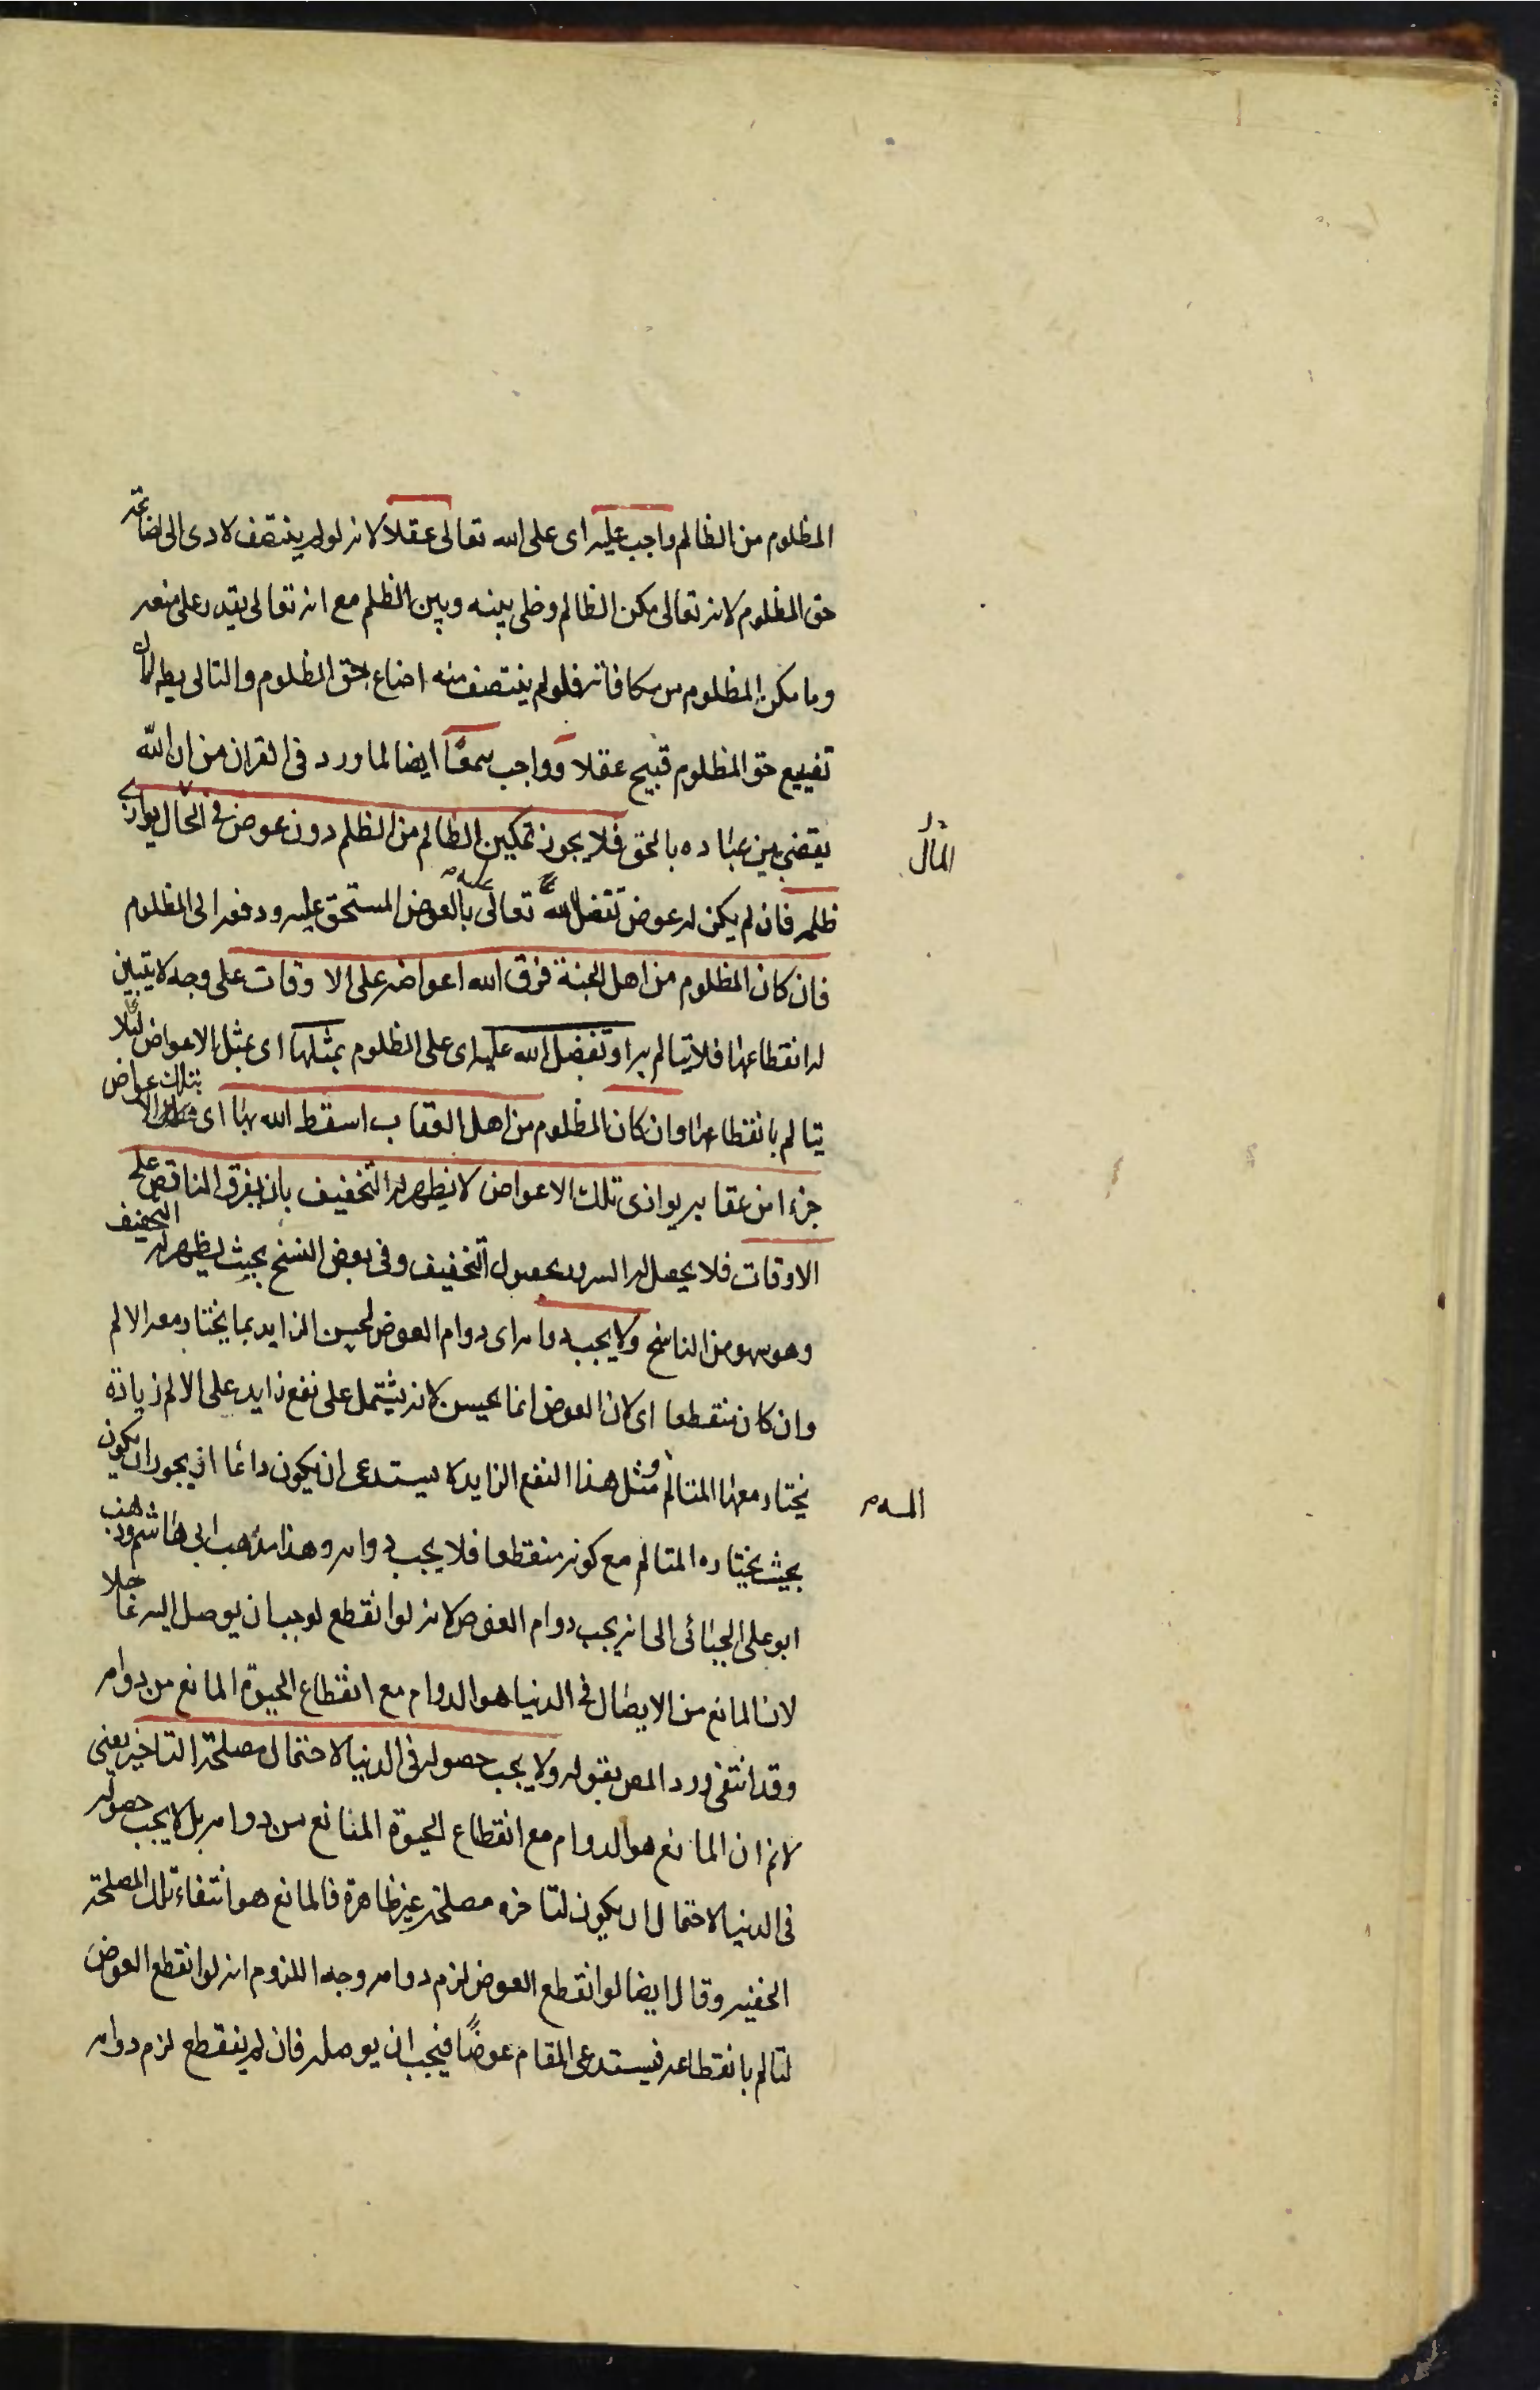 المظلوم من الظالم واجب عليه اى على الله تعالى عقلا لانه لو لم ينتصف لادى الى اضاعة
حق المظلوم لانه تعالى مكن الظالم وخلى بينه وبين الظلم مع انه تعالى يقدر على منعه
وما مكن المظلوم من مكافاته فلو لم ينتصف منه اضاع حق المظلوم والتالى بط لان
تضييع حق المظلوم قبيح عقلا وواجب سمعًا ايضا لما ورد فى القران من ان الله
يقضى بين عباده بالحق فلا يجوز تمكين الظالم من الظلم دون عوض فى الحال يوازى
المال
ظلمه فان لم يكن له عوض تفضل الله تعالى عليه بالعوض المستحق عليه ودفعه الى المظلوم
فان كان المظلوم من اهل الجنة فرق الله اعواضه على الاوقات على وجه لا يتبين
له انقطاعها فلا يتالم به او تفضل الله عليه اى على المظلوم بمثلها اى بمثل الاعواض لئلا
يتالم بانقطاعها وان كان المظلوم من اهل العقاب اسقط الله بها اى بتلك الاعواض
جزءا من عقابه يوازى تلك الاعواض لا يظهر له التخفيف بان يفرق الناقص على
الاوقات فلا يحصل له السرور بحصول التخفيف وفى بعض النسخ بحيث يظهر له التخفيف
وهو سهو من الناسخ ولا يجب دوامه اى دوام العوض لحسن الزايد بما يختار معه الالم
وان كان منقطعا اى لان العوض انما يحسن لانه يشتمل على نفع زايد على الالم زيادة
يختار معها المتالم ومثل هذا النفع الزايد لا يستدعى ان يكون دائما اذ يجوز ان يكون
بحيث يختاره المتالم مع كونه منقطعا فلا يجب دوامه وهذا مذهب ابى هاشم وذهب
ابو على الجبائى الى انه يجب دوام العوض لانه لو انقطع لوجب ان يوصل اليه عاجلا
لان المانع من الايصال فى الدنيا هو الدوام مع انقطاع الحيوة المانع من دوامه
وقد انتفى ورد المص بقوله ولا يجب حصوله فى الدنيا لاحتمال مصلحة التاخير يعنى
لانم ان المانع هو الدوام مع انقطاع الحيوة المانع من دوامه بل لا يجب حصوله
فى الدنيا لاحتمال ان يكون لتاخره مصلحة غير ظاهرة فالمانع هو انتفاء تلك المصلحة
الخفية وقال ايضا لو انقطع العوض لزم دوامه وجه اللزوم انه لو انقطع العوض
لتالم بانقطاعه فيستدعى المقام عوضًا فيجب ان يوصله فان لم ينقطع لزم دوامه